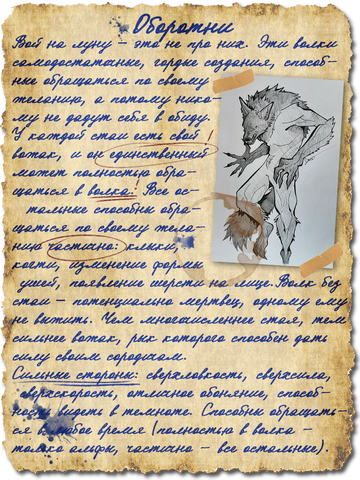 Оборотни
Вой на луну – это не про них. Эти волки
самодостаточные, гордые создания, способ-
ные обращаться по своему
желанию, а потому нико-
му не дадут себя в обиду.
У каждой стаи есть свой
вожак, и он единственный
может полностью обра-
щаться в волка! Все ос-
тальные способны обра-
щаться по своему жела-
нию частично: клыки,
когти, изменение формы
ушей, появление шерсти на лице. Волк без
стаи – потенциально мертвец, одному ему
не выжить. Чем многочисленнее стая, тем
сильнее вожак, рык которого способен дать
силу своим сородичам.
Сильные стороны: сверхловкость, сверхсила,
сверхскорость, отличное обоняние, способ-
ность видеть в темноте. Способны обращать-
ся в любое время (полностью в волка –
только альфы, частично – все остальные).